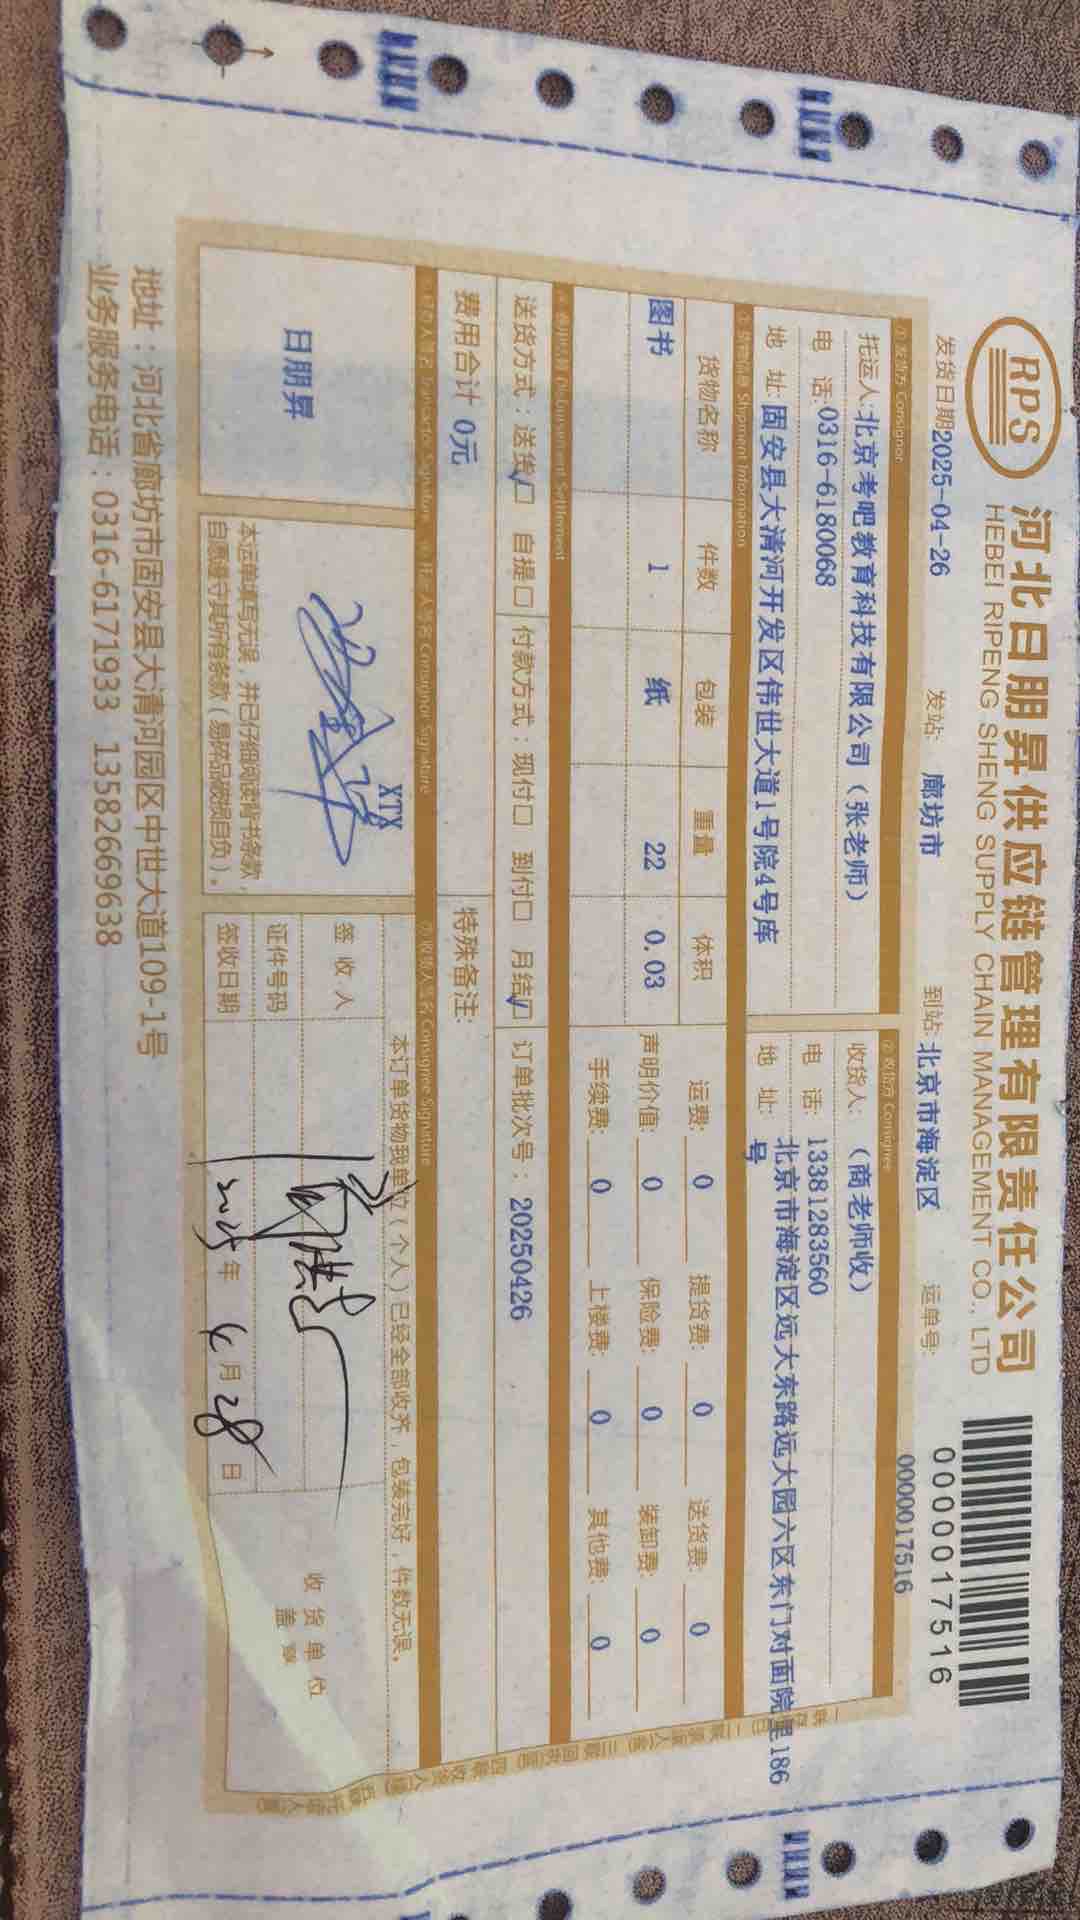 RPS
河北日朋昇供应链管理有限责任公司
HEBEI RIPENG SHENG SUPPLY CHAIN MANAGEMENT CO., LTD
0000017516
发货日期2025-04-26 发站: 廊坊市 到站: 北京市海淀区 运单号: 0000017516
①发货方 Consignor
②收货方 Consignee
托运人:北京考吧教育科技有限公司（张老师）
收货人: （商老师收）
电 话:0316-6180068
电 话: 13381283560
地 址:固安县大清河开发区伟世大道1号院4号库
地 址: 北京市海淀区远大东路远大园六区东门对面院里186
号
③货物信息 Shipment Information
货物名称 件数 包装 重量 体积
图书 1 纸 22 0.03
运费: 0 提货费: 0 送货费: 0
声明价值: 0 保险费: 0 装卸费: 0
手续费: 0 上楼费: 0 其他费: 0
送货方式：送货☑ 自提□ 付款方式：现付□ 到付□ 月结☑ 订单批次号：20250426
费用合计 0元
特殊备注:
Consignor Signature
⑦收货人签名 Consignee Signature
日朋昇
XTX
本运单填写无误，并已仔细阅读背书条款，
自愿遵守其所有条款（易碎品破损自负）。
本订单货物我单位（个人）已经全部收齐，包装完好，件数无误。
签 收 人
证件号码
签收日期 2025年 4月 28日
收 货 单 位
盖 章
地址：河北省廊坊市固安县大清河园区中世大道109-1号
业务服务电话：0316-6171933 13582669638